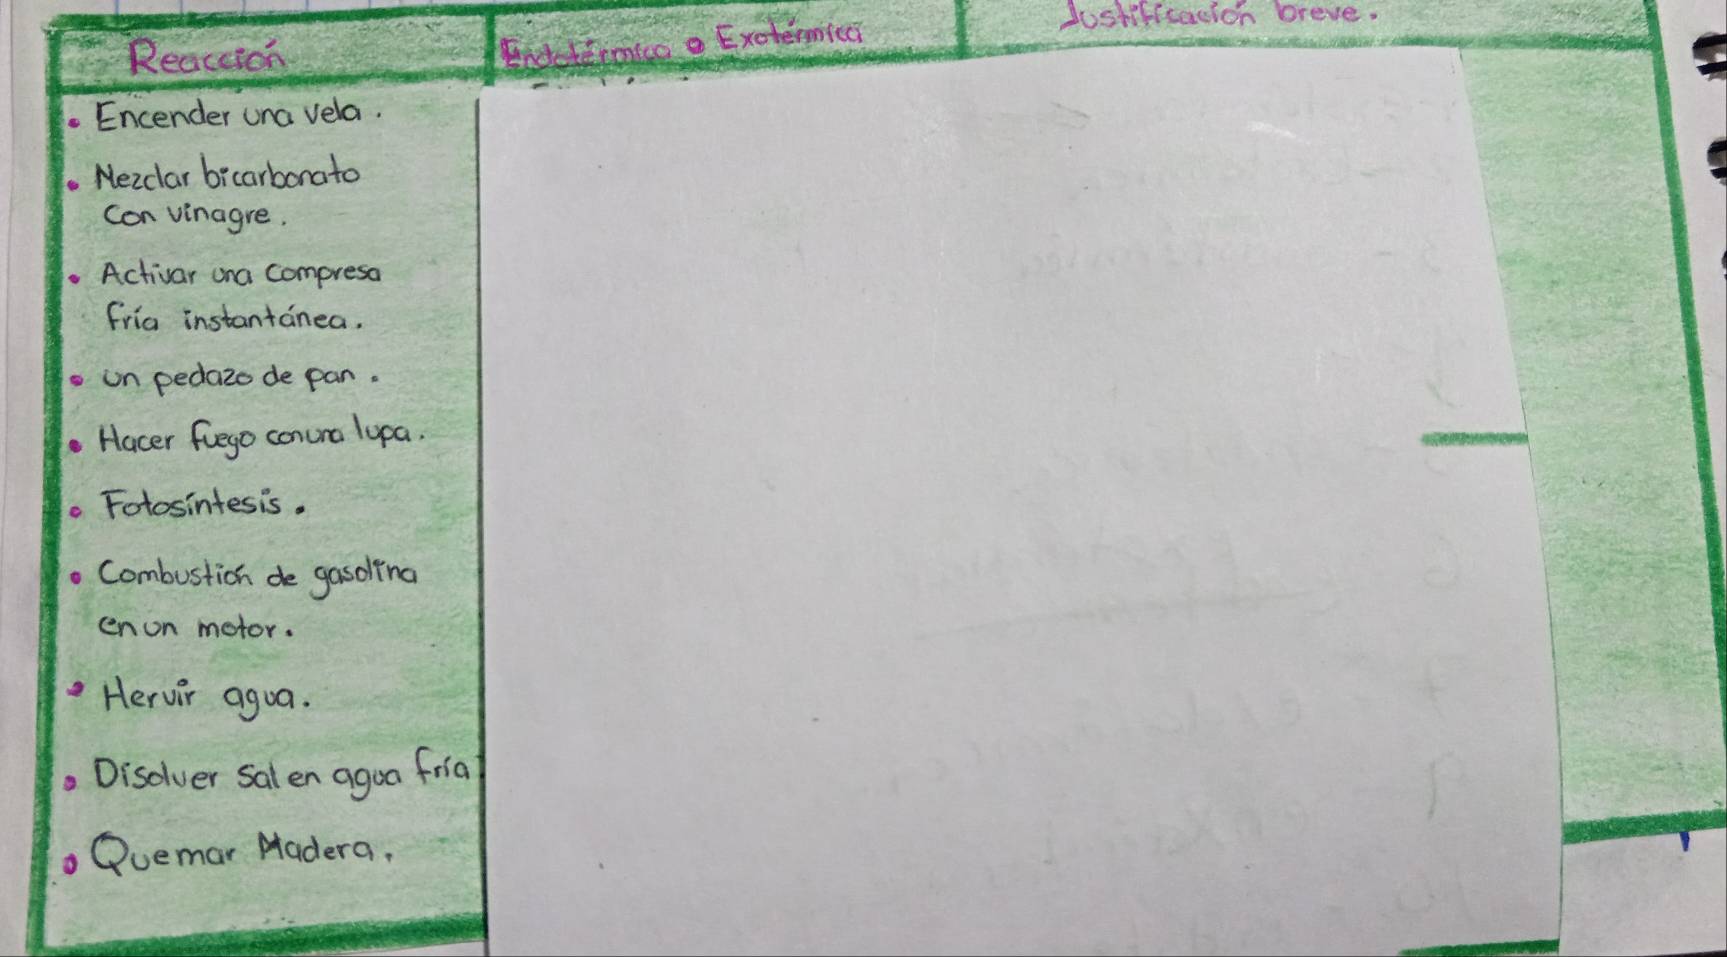 Reacción
Endotérmica o Exotérmica
Justificación breve.
• Encender una vela.
• Mezclar bicarbonato
con vinagre.
• Activar una compresa
fría instantánea.
• un pedazo de pan.
• Hacer fuego con una lupa.
• Fotosíntesis.
• Combustión de gasolina
en un motor.
• Hervir agua.
• Disolver sal en agua fría
• Quemar Madera.